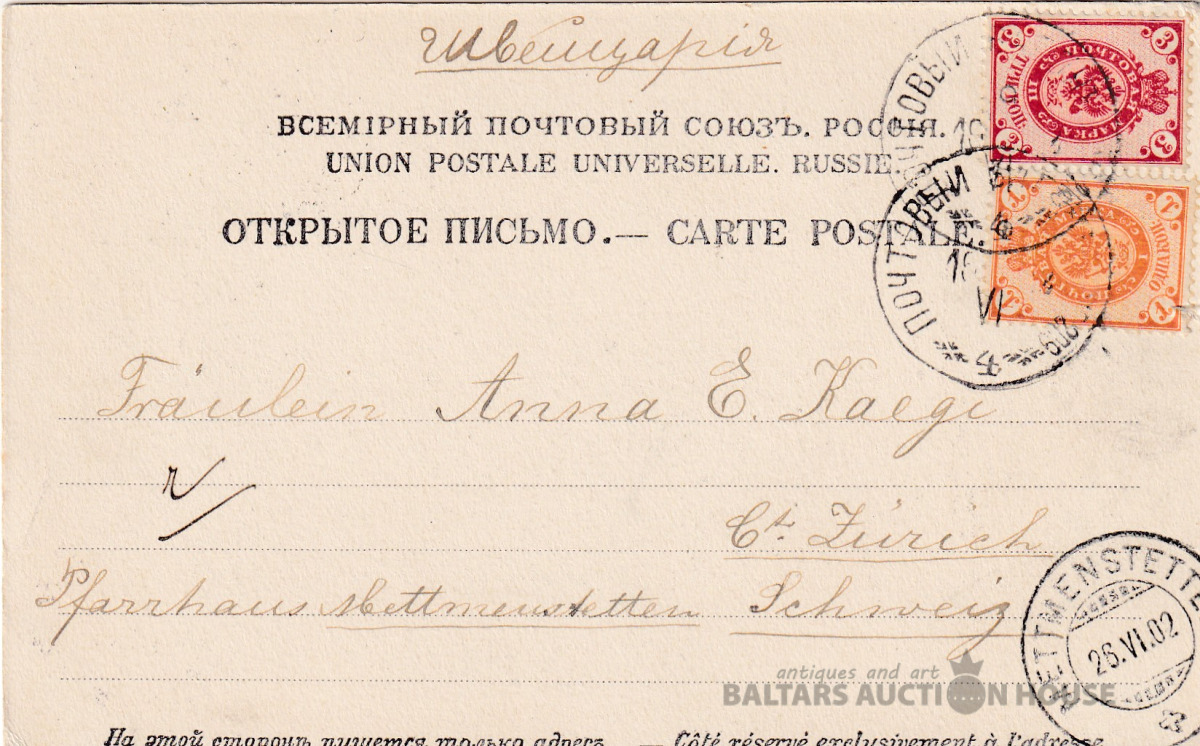 Швейцарія
ВСЕМІРНЫЙ ПОЧТОВЫЙ СОЮЗЪ. РОССІЯ.
UNION POSTALE UNIVERSELLE. RUSSIE.
ОТКРЫТОЕ ПИСЬМО.— CARTE POSTALE.
3 3 3 3
ПОЧТОВАЯ МАРКА
1 1 1
ПОЧТОВЫЙ
ПОЧТОВЫЙ
VI
Fräulein Anna E. Kaegi
Ct. Zürich
Pfarrhaus Mettmenstetten Schweiz
METTMENSTETTE
26.VI.02
antiques and art
BALTARS AUCTION HOUSE
На этой сторонѣ пишется только адресъ. — Côté réservé exclusivement à l'adresse.